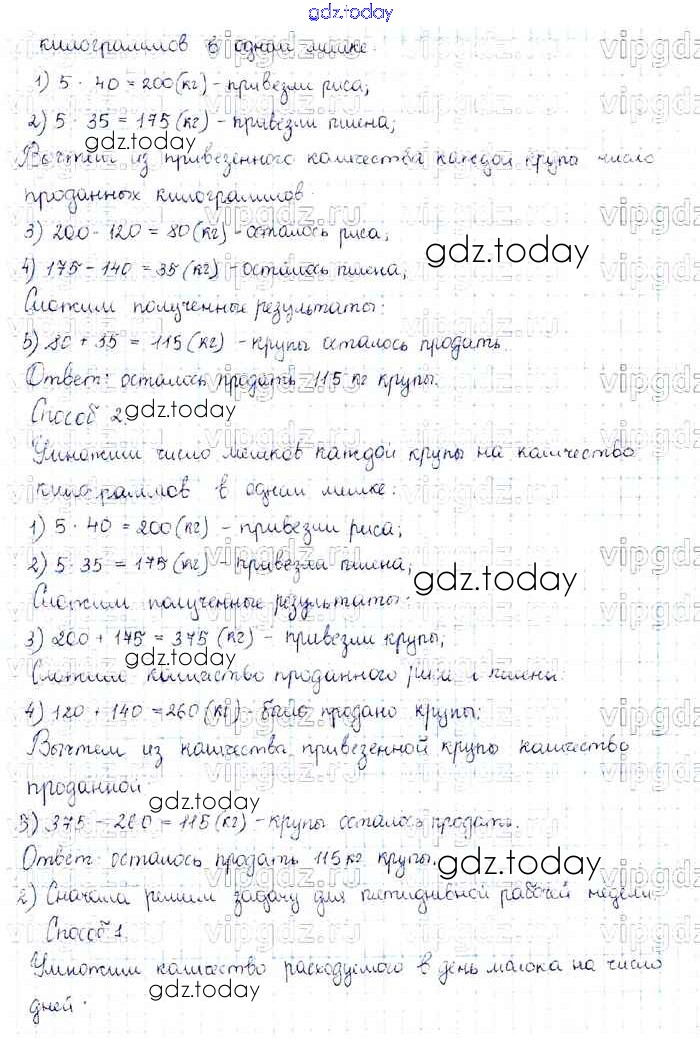 gdz.today
килограммов в одном мешке.
1) 5 · 40 = 200 (кг) - привезли риса;
2) 5 · 35 = 175 (кг) - привезли пшена;
gdz.today
Вычтем из привезенного количества каждой крупы число
проданных килограммов.
3) 200 - 120 = 80 (кг) - осталось риса;
gdz.today
4) 175 - 140 = 35 (кг) - осталось пшена;
Сложим полученные результаты:
5) 80 + 35 = 115 (кг) - крупы осталось продать.
Ответ: осталось продать 115 кг крупы.
Способ 2.
gdz.today
Умножим число мешков каждой крупы на количество
килограммов в одном мешке:
1) 5 · 40 = 200 (кг) - привезли риса;
2) 5 · 35 = 175 (кг) - привезла пшена;
gdz.today
Сложим полученные результаты:
3) 200 + 175 = 375 (кг) - привезли крупы;
gdz.today
Сложим количество проданного риса и пшена:
4) 120 + 140 = 260 (кг) - было продано крупы;
Вычтем из количества привезенной крупы количество
проданной
gdz.today
5) 375 - 260 = 115 (кг) - крупы осталось продать.
Ответ: осталось продать 115 кг крупы.
gdz.today
2) Сначала решим задачу для пятидневной рабочей недели.
Способ 1.
Умножим количество расходуемого в день молока на число
gdz.today
дней.
vipgdz.ru